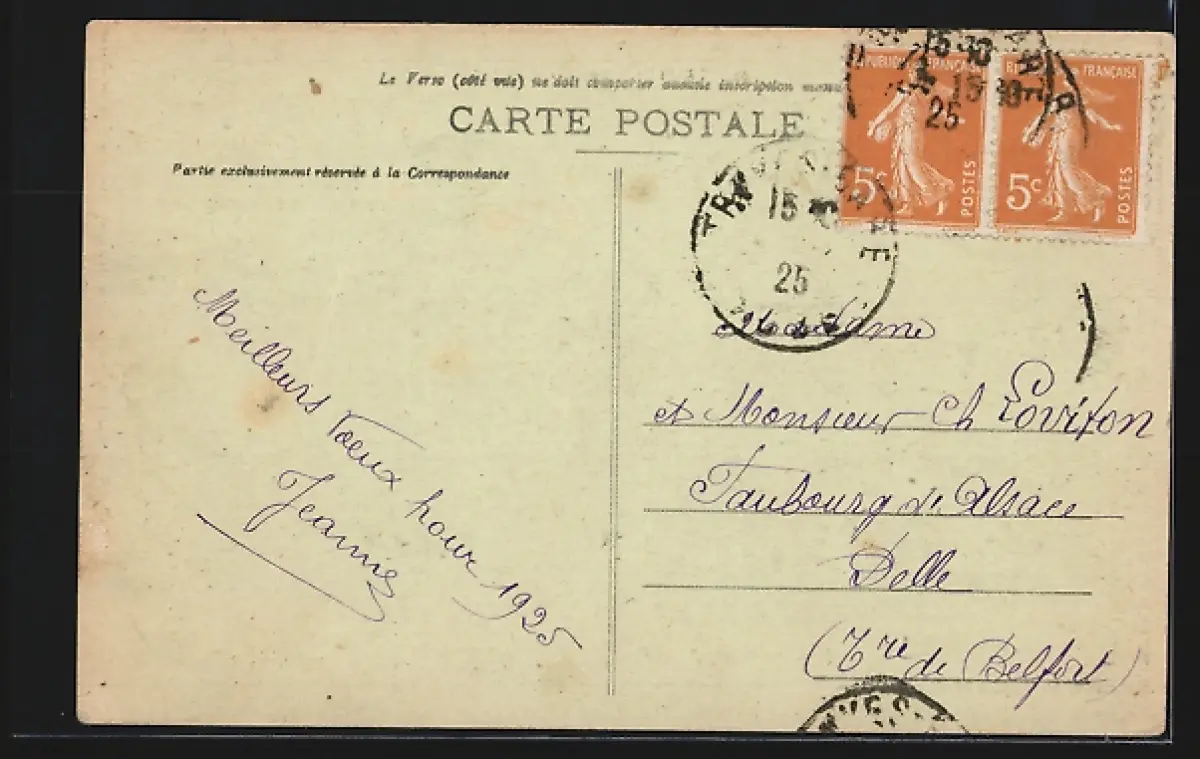 Le Verso (côté vue) ne doit comporter aucune inscription manu
CARTE POSTALE
Partie exclusivement réservée à la Correspondance
RÉPUBLIQUE FRANÇAISE
5c
POSTES
FRANÇAISE
5c
POSTES
15 30
15 30
25
15
25
Meilleurs Voeux pour 1925
Jeanne
Madame
et Monsieur Ch Loviton
Faubourg d'Alsace
Delle
(Tre de Belfort)